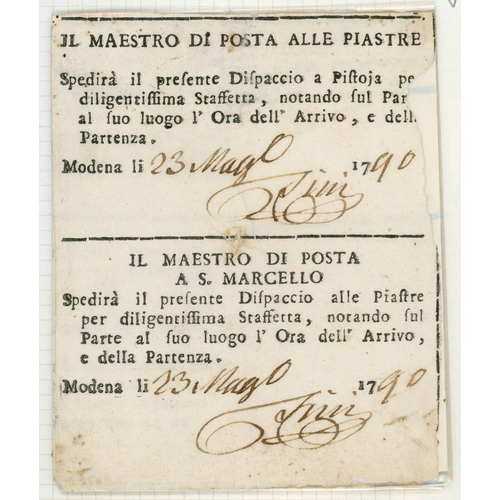 IL MAESTRO DI POSTA ALLE PIASTRE
Spedirà il presente Dispaccio a Pistoja pe
diligentissima Staffetta, notando sul Par
al suo luogo l'Ora dell'Arrivo, e dell
Partenza.
Modena li 23 Magº 1790
Fini
IL MAESTRO DI POSTA
A S. MARCELLO
Spedirà il presente Dispaccio alle Piastre
per diligentissima Staffetta, notando sul
Parte al suo luogo l'Ora dell'Arrivo,
e della Partenza.
Modena li 23 Magº 1790
Fini